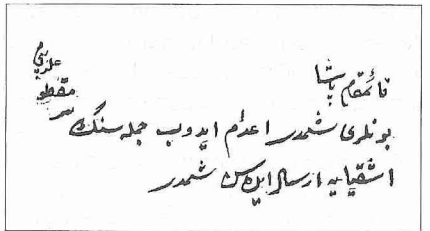 قائمقام پاشا
بونلری شمدی اعدام ایدوب جمله سنك سر
مقطو
علرینی
اشقیایه ارسال ایده سن شمدی